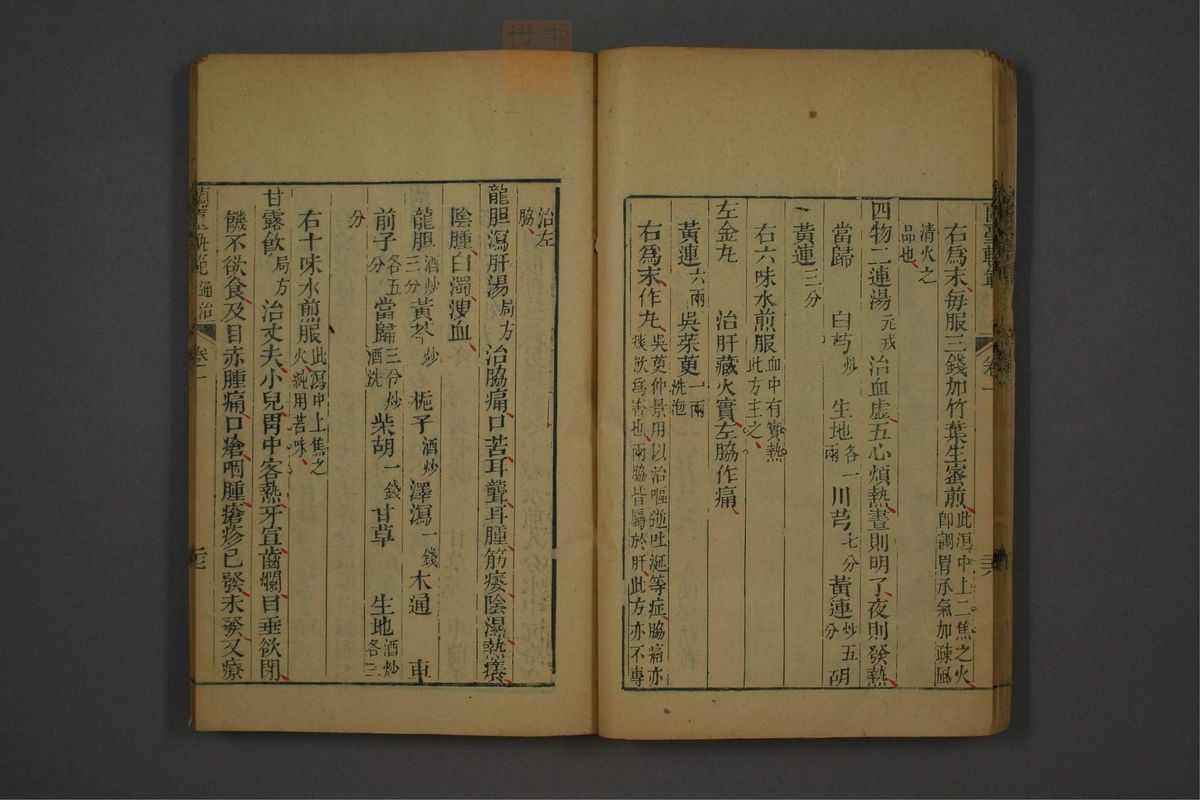 右爲末每服三錢加竹葉生蜜煎此瀉中上二焦之火卽調胃承氣加疎風
清火之品也
四物二連湯元戎治血虛五心煩熱晝則明了夜則發熱
當歸 白芍炒 生地各一兩 川芎七分 黃連炒五分 胡
黃連三分
右六味水煎服血中有實熱此方主之
左金丸 治肝藏火實左脇作痛
黃連六兩 吳茱萸一兩洗泡
右爲末作丸吳萸仲景用以治嘔逆吐涎等症脇痛亦痰飲爲害也兩脇皆屬於肝此方亦不專
卷一
治左脇
龍胆瀉肝湯局方治脇痛口苦耳聾耳腫筋痿陰濕熱癢
陰腫白濁溲血
龍胆酒炒三分 黃芩炒 梔子酒炒 澤瀉一錢 木通 車
前子各五分 當歸三分炒酒洗 柴胡一錢 甘草 生地酒炒各三
分
右十味水煎服此瀉中上焦之火純用苦味
甘露飲局方 治丈夫小兒胃中客熱牙宣齒爛目垂欲閉
饑不欲食及目赤腫痛口瘡咽腫瘡疹已發未發又療
通治 卷一